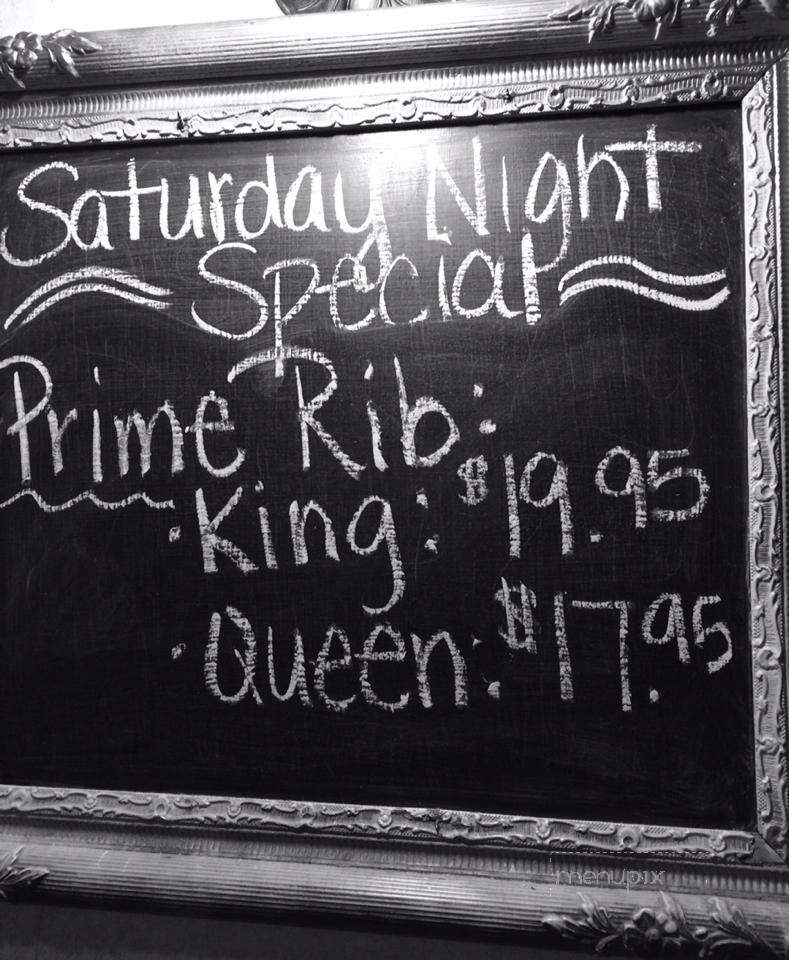 Saturday Night
Special
Prime Rib:
·King: $19.95
·Queen: $17.95
menupix